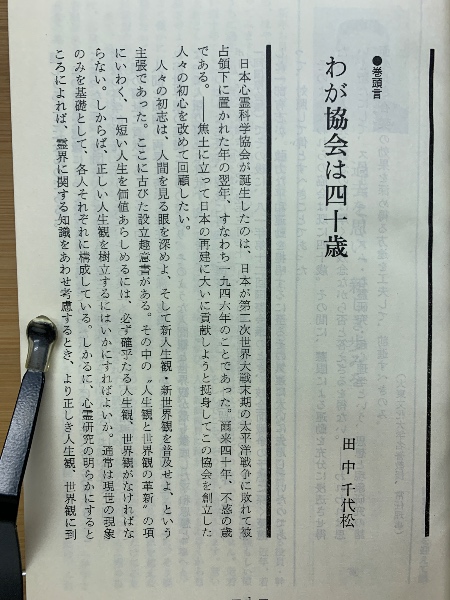 ●巻頭言
わが協会は四十歳
田中千代松
日本心霊科学協会が誕生したのは、日本が第二次世界大戦末期の太平洋戦争に敗れて被
占領下に置かれた年の翌年、すなわち一九四六年のことであった。爾来四十年、不惑の歳
である。――焦土に立って日本の再建に大いに貢献しようと挺身してこの協会を創立した
人々の初心を改めて回顧したい。
人々の初志は、人間を見る眼を深めよ、そして新人生観・新世界観を普及せよ、という
主張であった。ここに古びた設立趣意書がある。その中の〝人生観と世界観の革新〟の項
にいわく、「短い人生を価値あらしめるには、必ず確乎たる人生観、世界観がなければな
らない。しからば、正しい人生観を樹立するにはいかにすればよいか。通常は現世の現象
のみを基礎として、各人それぞれに構成している。しかるに、心霊研究の明らかにすると
ころによれば、霊界に関する知識をあわせ考慮するとき、より正しき人生観、世界観に到